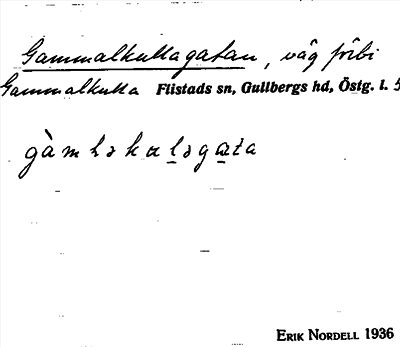 Gammalkullagatan, väg förbi
Gammalkulla Flistads sn, Gullbergs hd, Östg. l. 5
gàmləkulə̱ga̱ta
ERIK NORDELL 1936